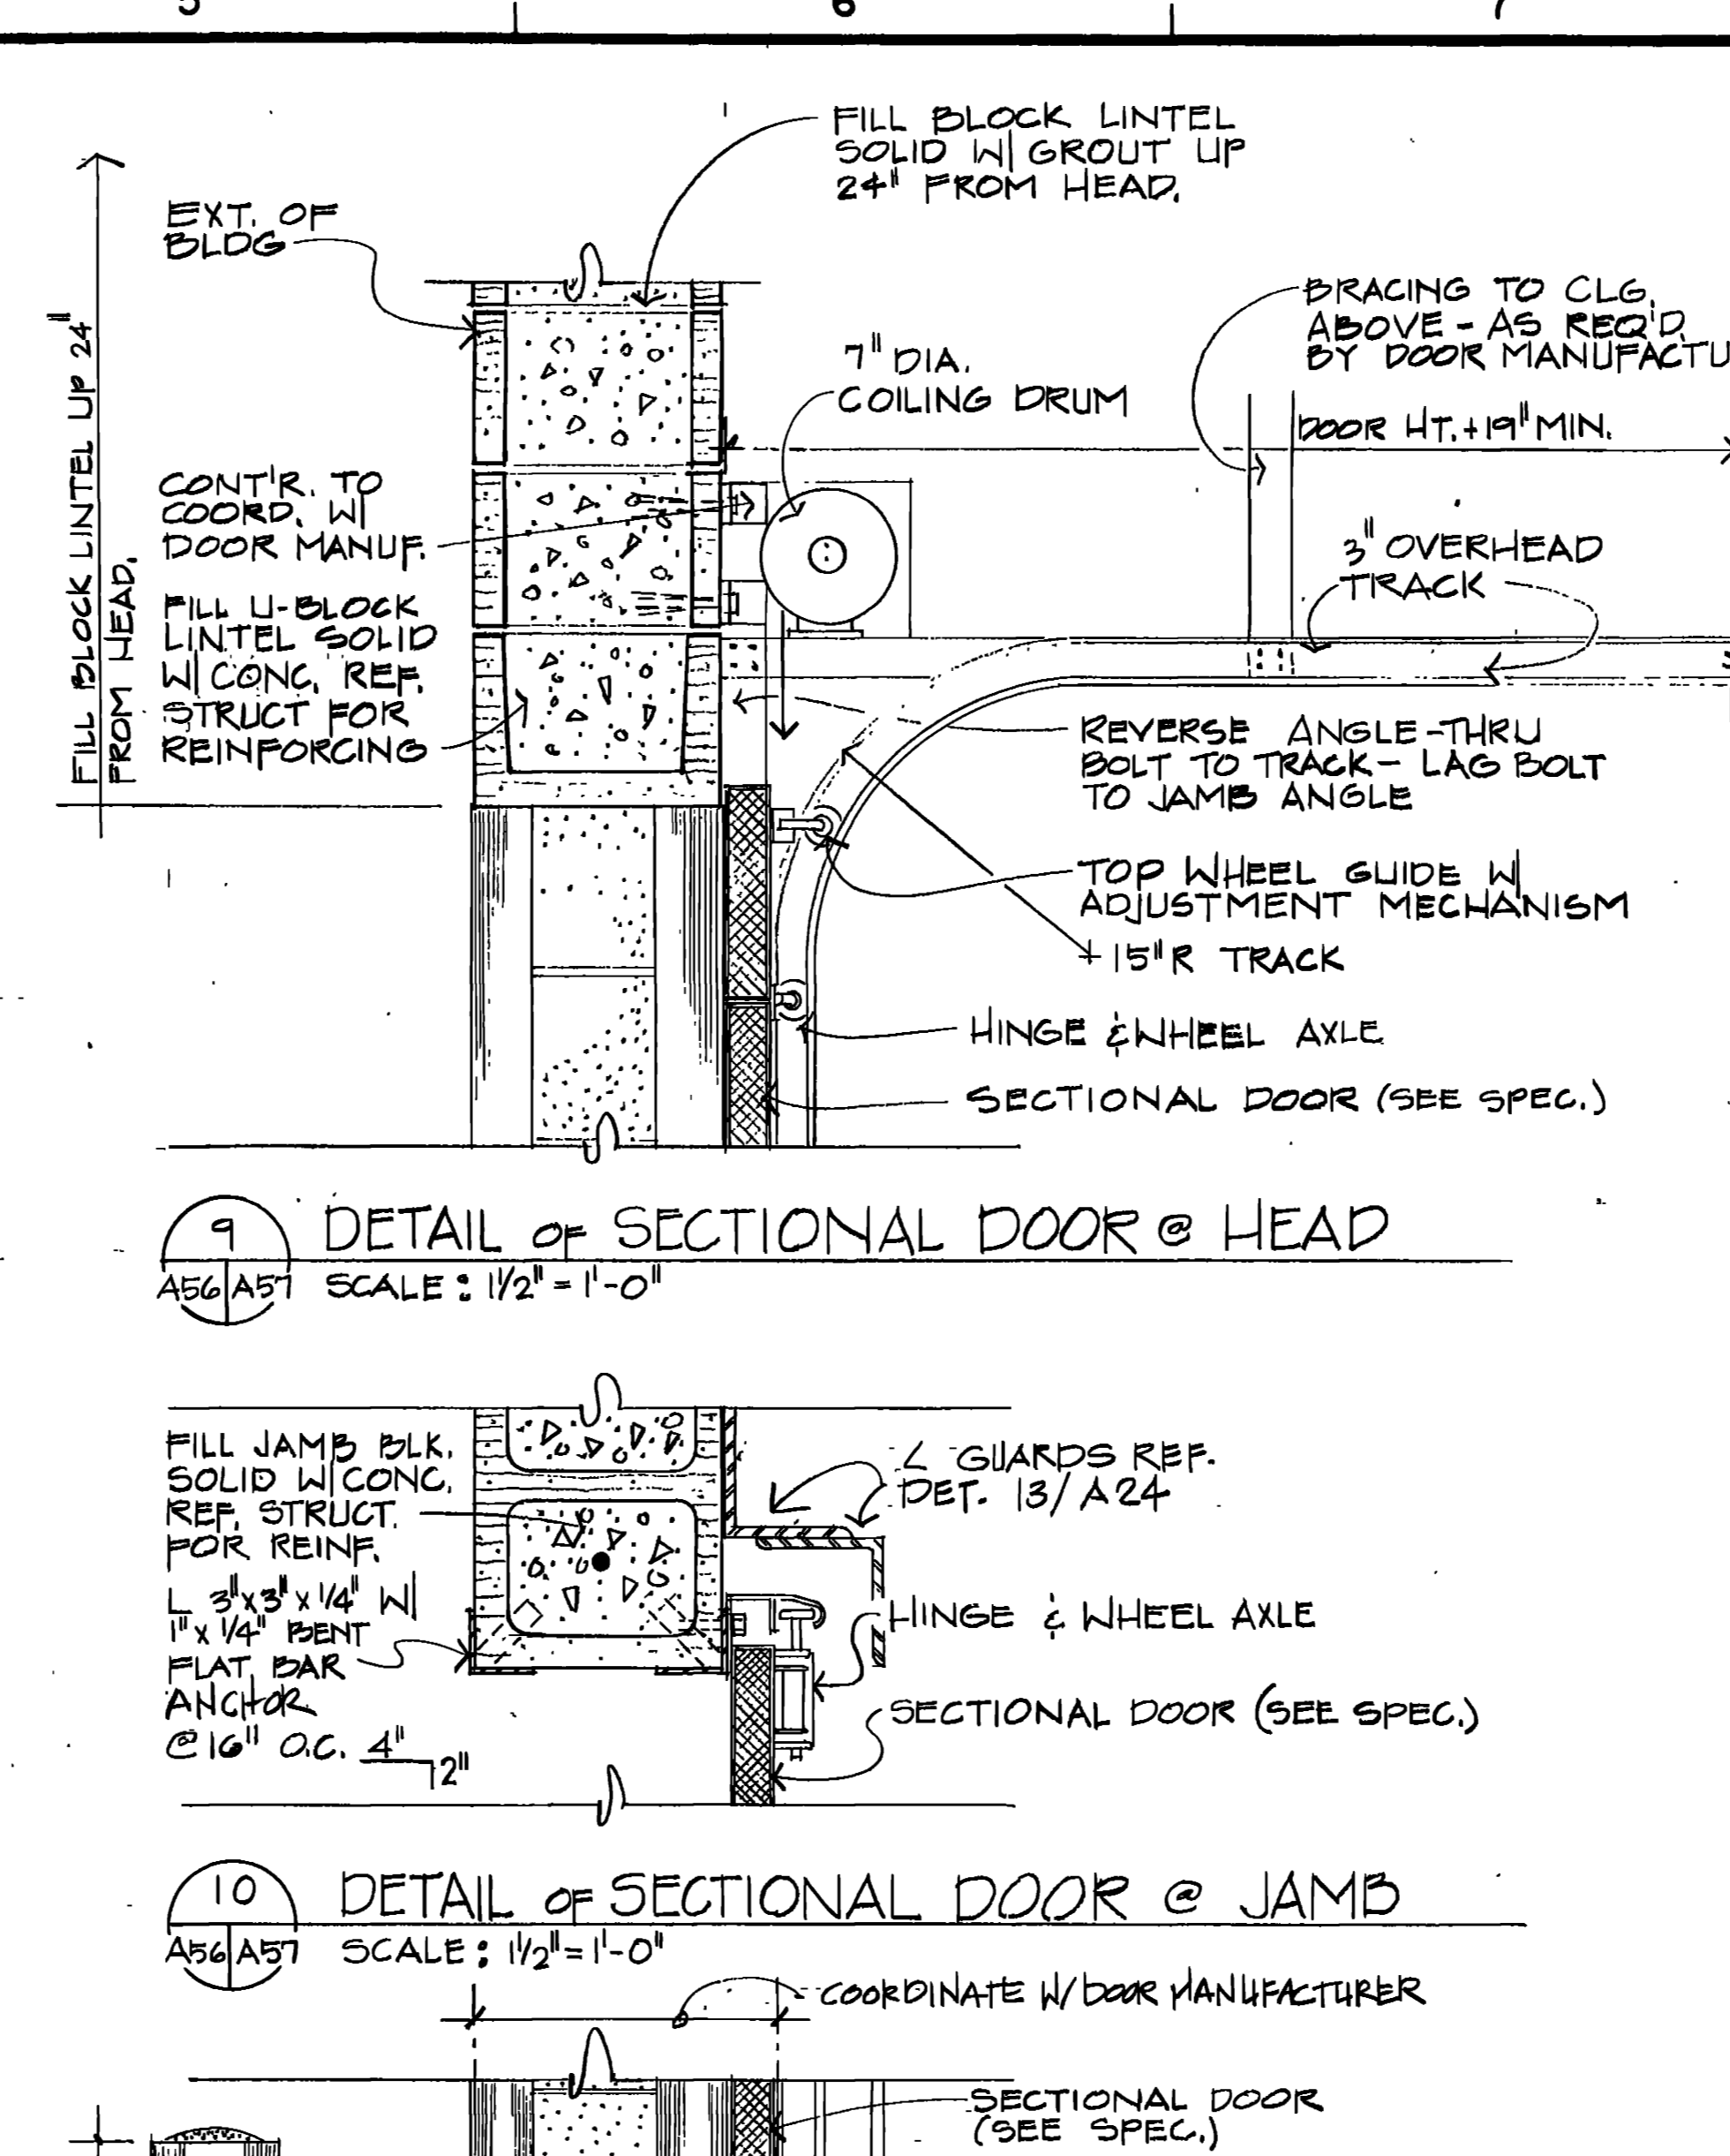 5 6 7
FILL BLOCK LINTEL
SOLID W/ GROUT UP
24" FROM HEAD.
EXT. OF
BLDG
FILL BLOCK LINTEL UP 24"
FROM HEAD.
BRACING TO CLG.
ABOVE - AS REQ'D.
BY DOOR MANUFACTU
7" DIA.
COILING DRUM
DOOR HT. + 19" MIN.
CONT'R. TO
COORD. W/
DOOR MANUF.
3" OVERHEAD
TRACK
FILL U-BLOCK
LINTEL SOLID
W/ CONC. REF.
STRUCT FOR
REINFORCING
REVERSE ANGLE-THRU
BOLT TO TRACK - LAG BOLT
TO JAMB ANGLE
TOP WHEEL GUIDE W/
ADJUSTMENT MECHANISM
15" R TRACK
HINGE & WHEEL AXLE
SECTIONAL DOOR (SEE SPEC.)
9 DETAIL OF SECTIONAL DOOR @ HEAD
A56 A57 SCALE: 1 1/2" = 1'-0"
FILL JAMB BLK.
SOLID W/ CONC.
REF. STRUCT.
FOR REINF.
L 3" x 3" x 1/4" W/
1" x 1/4" BENT
FLAT BAR
ANCHOR
@ 16" O.C. 4"
2"
∠ GUARDS REF.
DET. 13/A24
HINGE & WHEEL AXLE
SECTIONAL DOOR (SEE SPEC.)
10 DETAIL OF SECTIONAL DOOR @ JAMB
A56 A57 SCALE: 1 1/2" = 1'-0"
COORDINATE W/ DOOR MANUFACTURER
SECTIONAL DOOR
(SEE SPEC.)